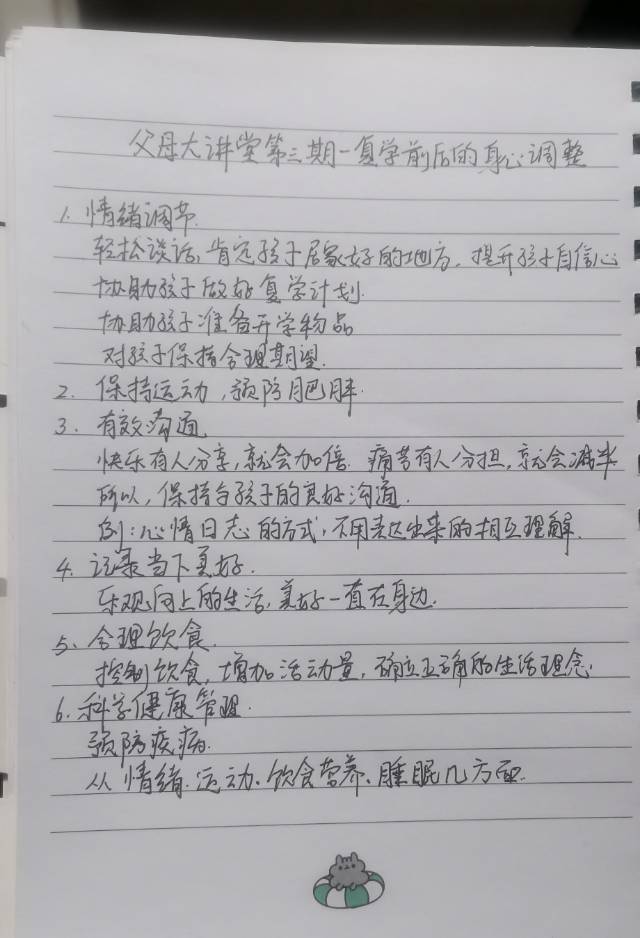 父母大讲堂第三期-复学前后的身心调整
1. 情绪调节.
轻松谈话,肯定孩子居家好的地方,提升孩子自信心
协助孩子做好复学计划.
协助孩子准备开学物品
对孩子保持合理期望.
2. 保持运动,预防肥胖.
3. 有效沟通
快乐有人分享,就会加倍.痛苦有人分担,就会减半
所以,保持与孩子的良好沟通.
例:心情日志的方式,不用表达出来的相互理解.
4. 记录当下美好.
乐观向上的生活,美好一直在身边.
5、合理饮食.
控制饮食,增加活动量,确立正确的生活理念.
6. 科学健康管理.
预防疾病.
从情绪.运动、饮食营养、睡眠几方面.